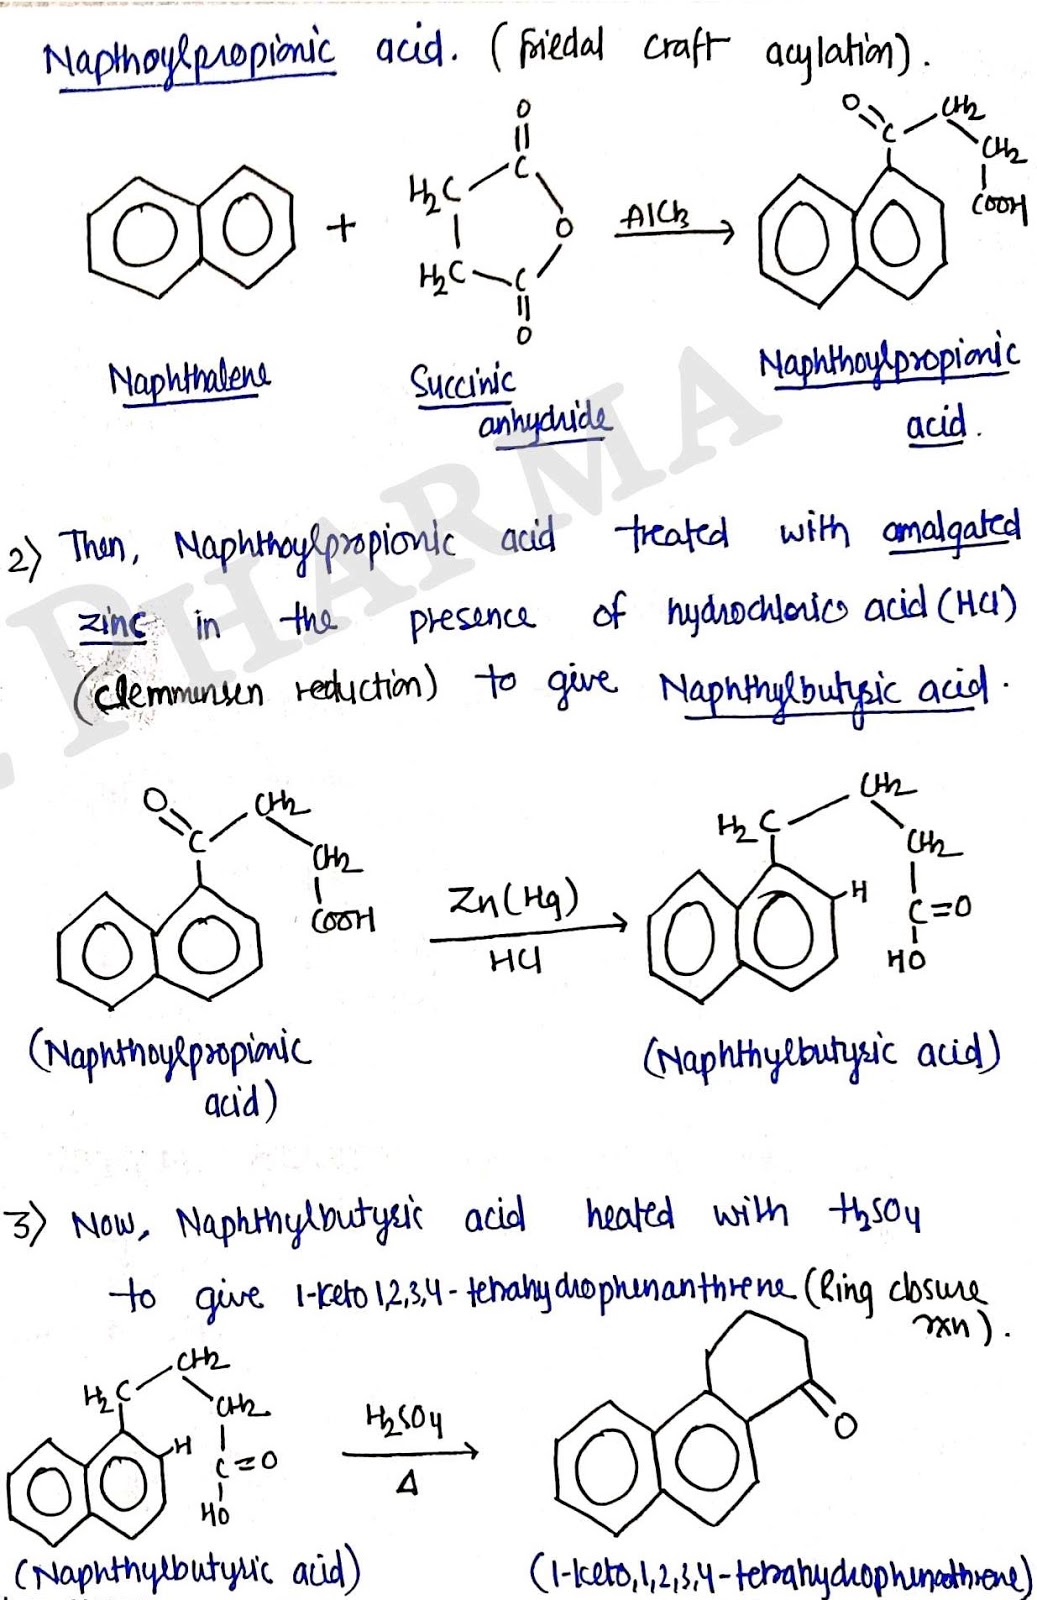 Napthoylpropionic acid. (friedal craft acylation).
O
O CH2
C
C CH2
H2C
COOH
+ O AlCl3
H2C C
O
Naphthalene Succinic anhydride Naphthoylpropionic acid.
PHARMA
2) Then, Naphthoylpropionic acid treated with amalgated
zinc in the presence of hydrochloric acid (HCl)
(Clemmunsen reduction) to give Naphthylbutyric acid.
O CH2 CH2
C H2C
CH2 CH2
COOH Zn(Hg) H C=O
HCl HO
(Naphthoylpropionic acid) (Naphthylbutyric acid)
3) Now, Naphthylbutyric acid heated with H2SO4
to give 1-keto 1,2,3,4-tetrahydrophenanthrene (Ring closure
rxn).
CH2
H2C
CH2 H2SO4
H Δ O
C=O
HO
(Naphthylbutyric acid) (1-keto,1,2,3,4-tetrahydrophenathrene)